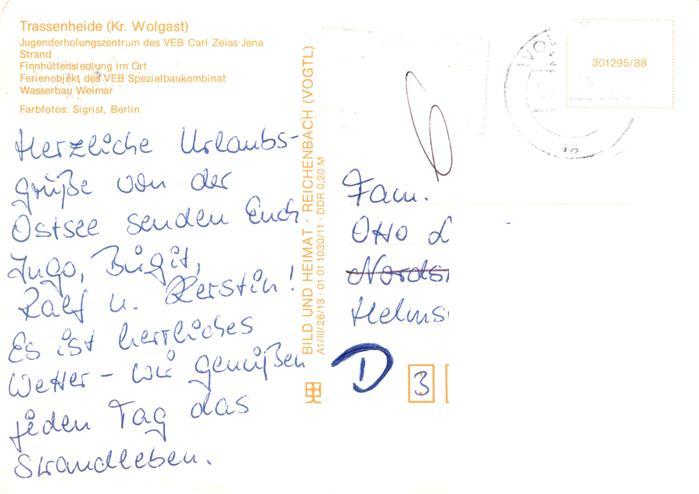 Trassenheide (Kr. Wolgast)
Jugenderholungszentrum des VEB Carl Zeiss Jena
Strand
Finnhüttensiedlung im Ort
Ferienobjekt des VEB Spezialbaukombinat
Wasserbau Weimar
Farbfotos: Sigrist, Berlin
Herzliche Urlaubs-
grüße von der
Ostsee senden Euch
Ingo, Birgit,
Ralf u. Kerstin!
Es ist herrliches
Wetter - wir genießen
jeden Tag das
Strandleben.
BILD UND HEIMAT · REICHENBACH (VOGTL)
A1/III/26/13 · 01 01 1030/11 · DDR 0,20 M
301295/88
6
Fam.
Otto L
Nords
Helms
D
3